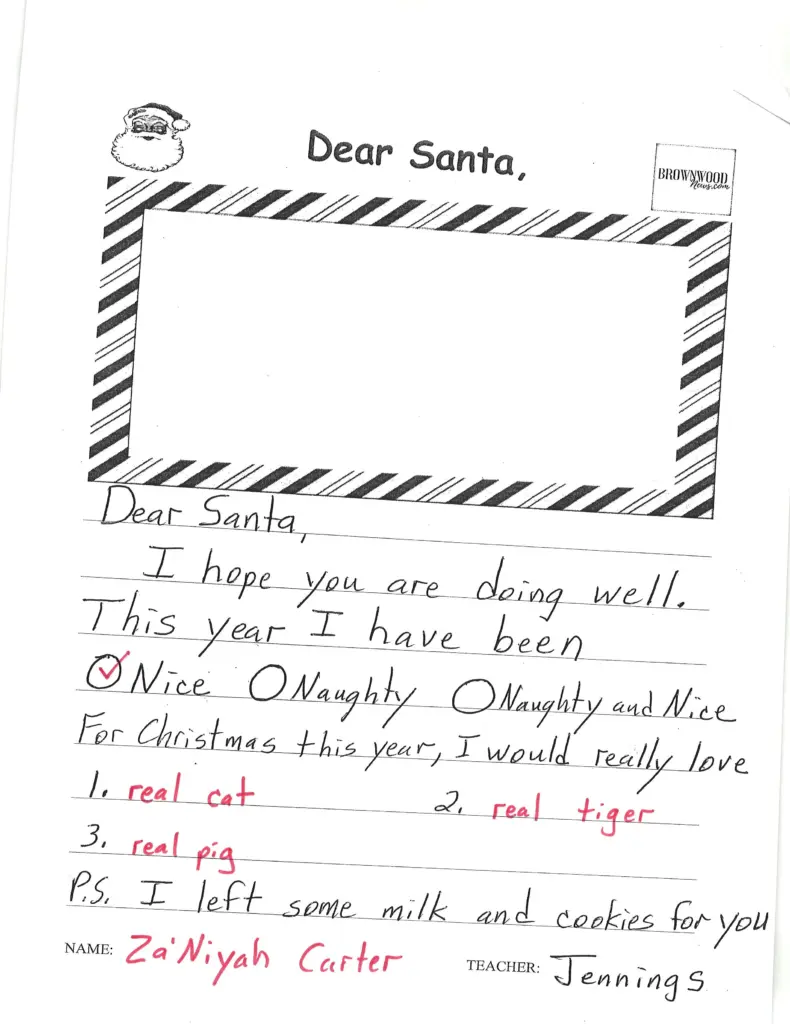 Dear Santa,
BROWNWOOD
News.com
Dear Santa,
I hope you are doing well.
This year I have been
Nice Naughty Naughty and Nice
For Christmas this year, I would really love
1. real cat 2. real tiger
3. real pig
P.S. I left some milk and cookies for you
NAME: Za'Niyah Carter TEACHER: Jennings